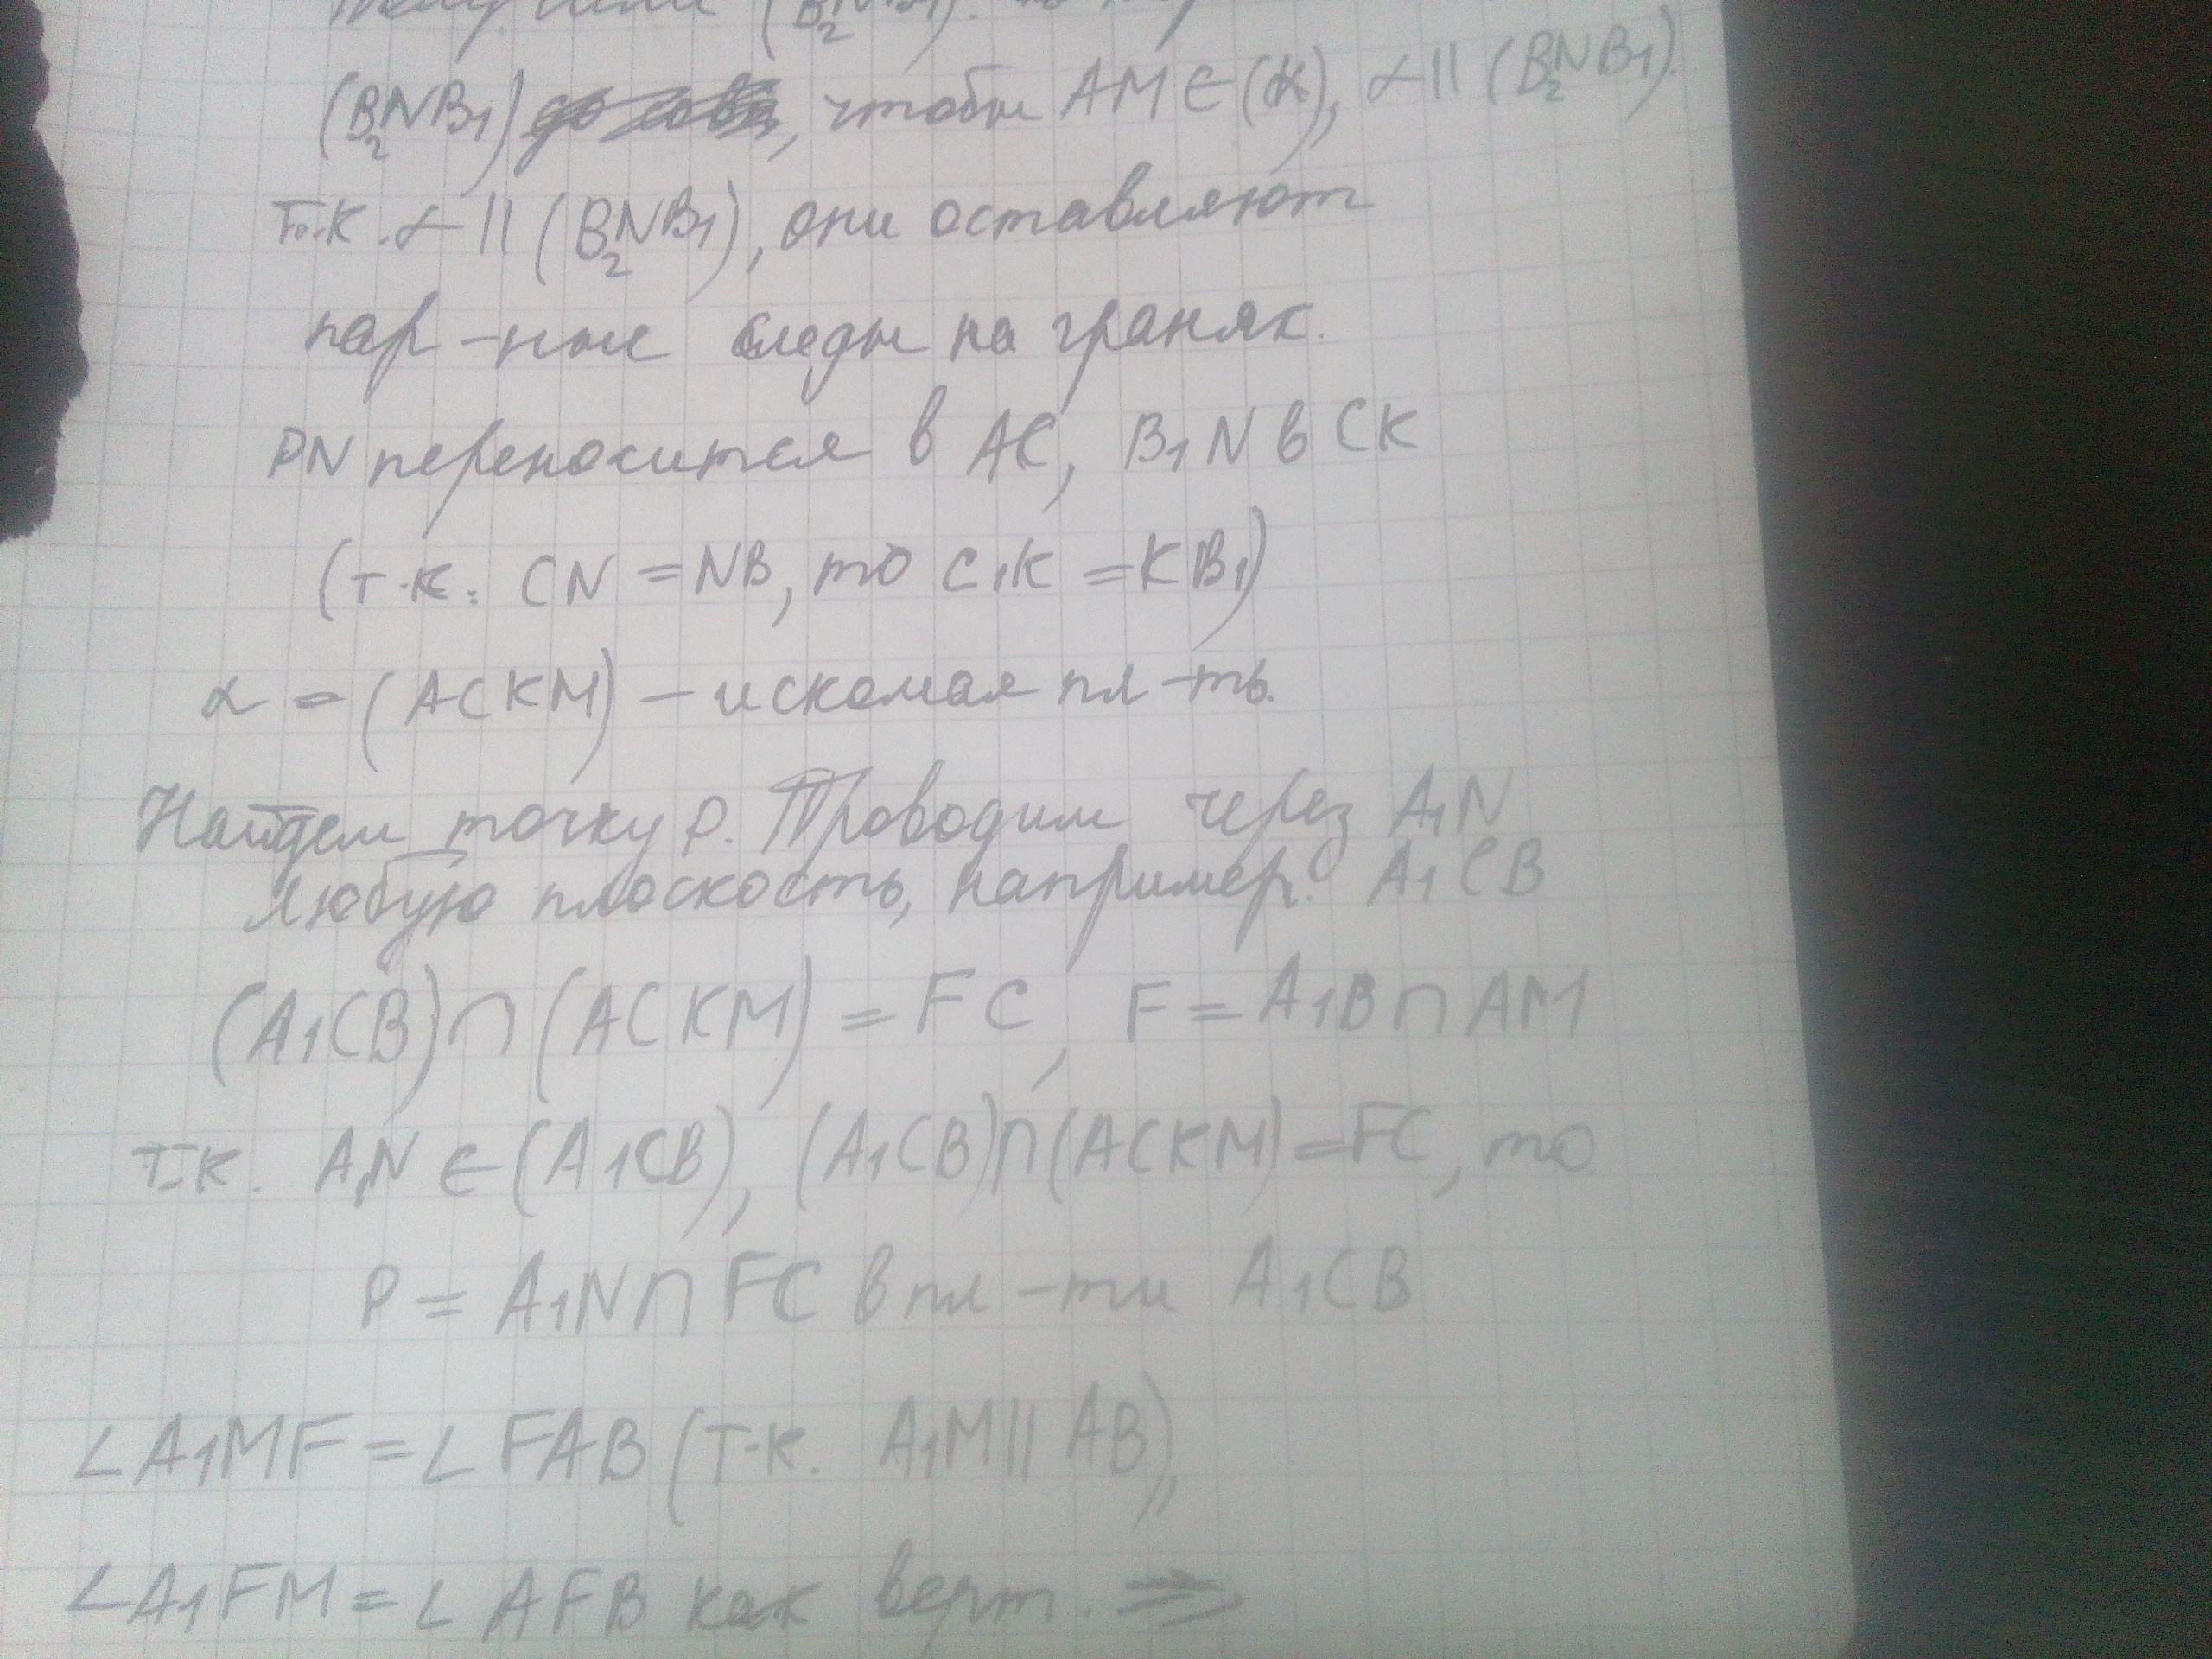 (B₂NB₁)
(B₂NB₁), чтобы AM ∈ (α), α || (B₂NB₁).
т.к. α || (B₂NB₁), они оставляют
пар-ные следы на гранях.
PN переносится в AC, B₁N в CK
(т.к. CN = NB, то C₁K = KB₁)
α = (ACKM) – искомая пл-ть.
Найдем точку P. Проводим через A₁N
любую плоскость, например. A₁CB
(A₁CB) ∩ (ACKM) = FC, F = A₁B ∩ AM
т.к. A₁N ∈ (A₁CB), (A₁CB) ∩ (ACKM) = FC, то
P = A₁N ∩ FC в пл-ти A₁CB
∠A₁MF = ∠FAB (т.к. A₁M || AB),
∠A₁FM = ∠AFB как верт. ⇒